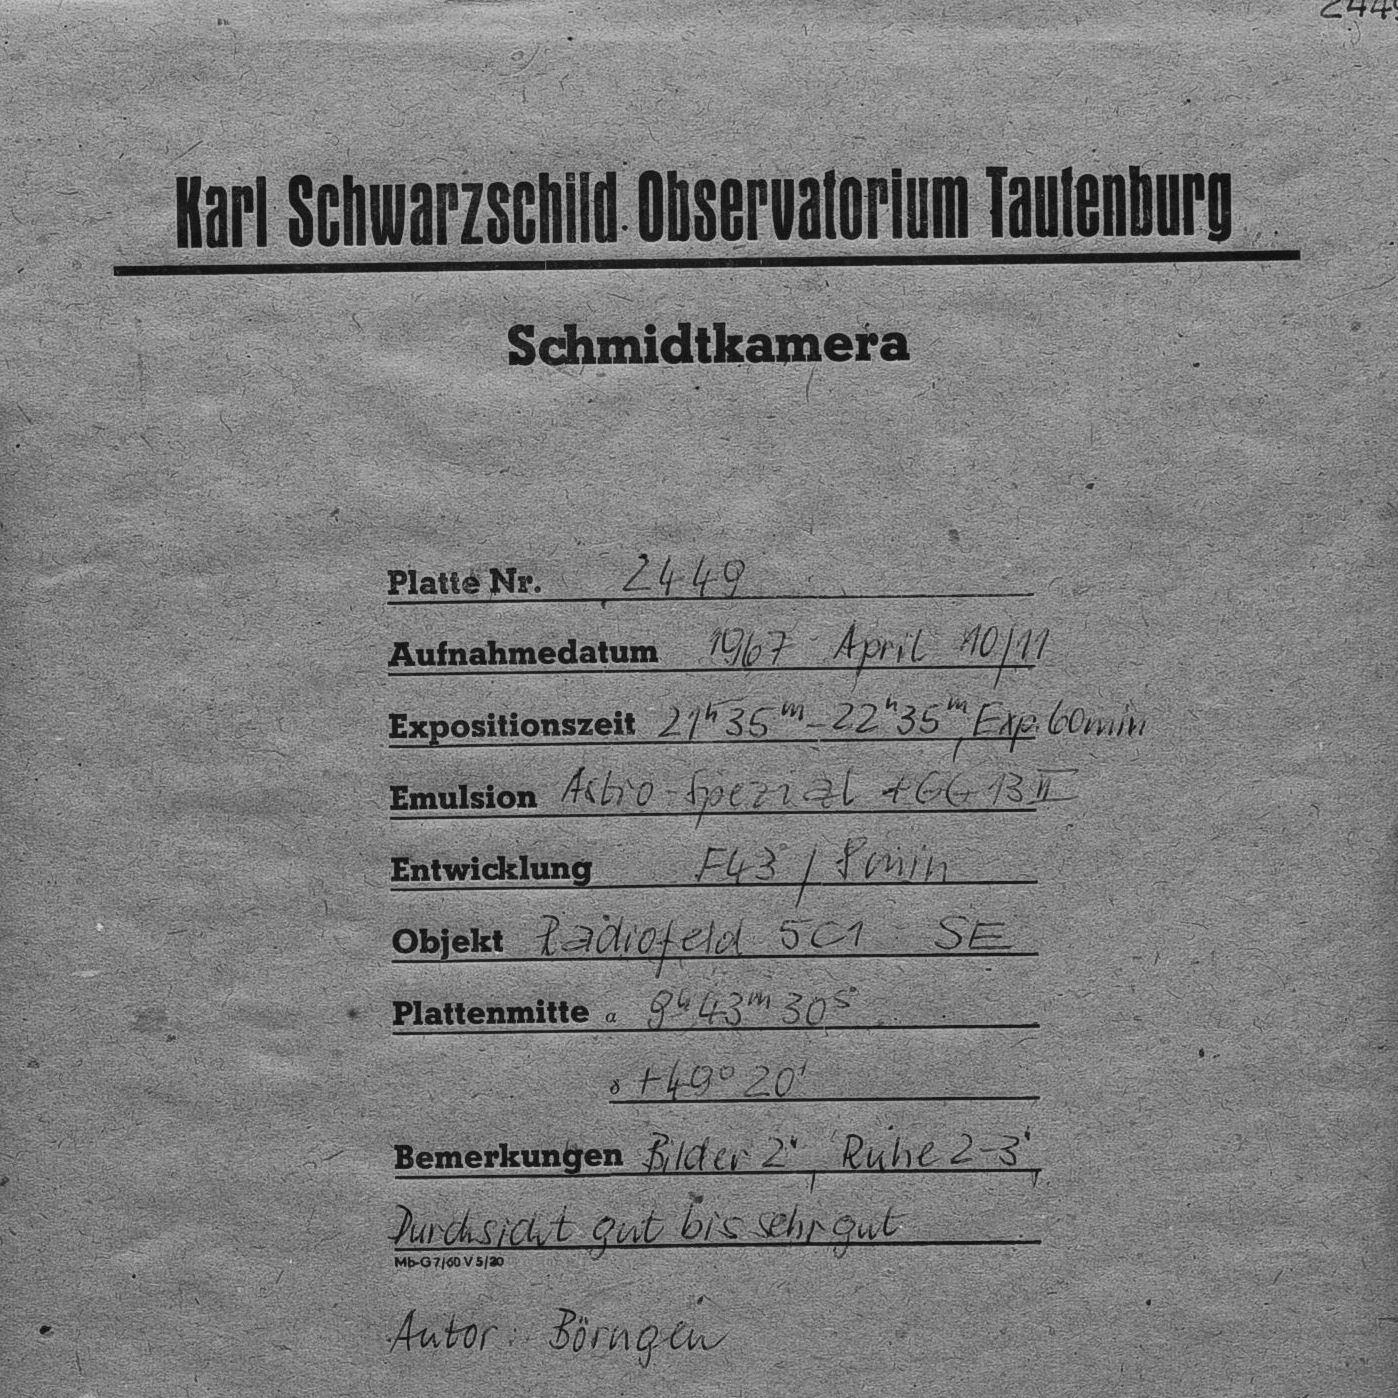 2449
Karl Schwarzschild Observatorium Tautenburg
Schmidtkamera
Platte Nr. 2449
Aufnahmedatum 1967 April 10/11
Expositionszeit 21h35m-22h35m, Exp. 60min
Emulsion Astro-Spezial +GG13 II
Entwicklung F43 / 8min
Objekt Radiofeld 5C1 SE
Plattenmitte α 9h43m30s
δ +49° 20'
Bemerkungen Bilder 2", Ruhe 2-3",
Durchsicht gut bis sehr gut
Mb-G 7/60 V 5/20
Autor: Börngen